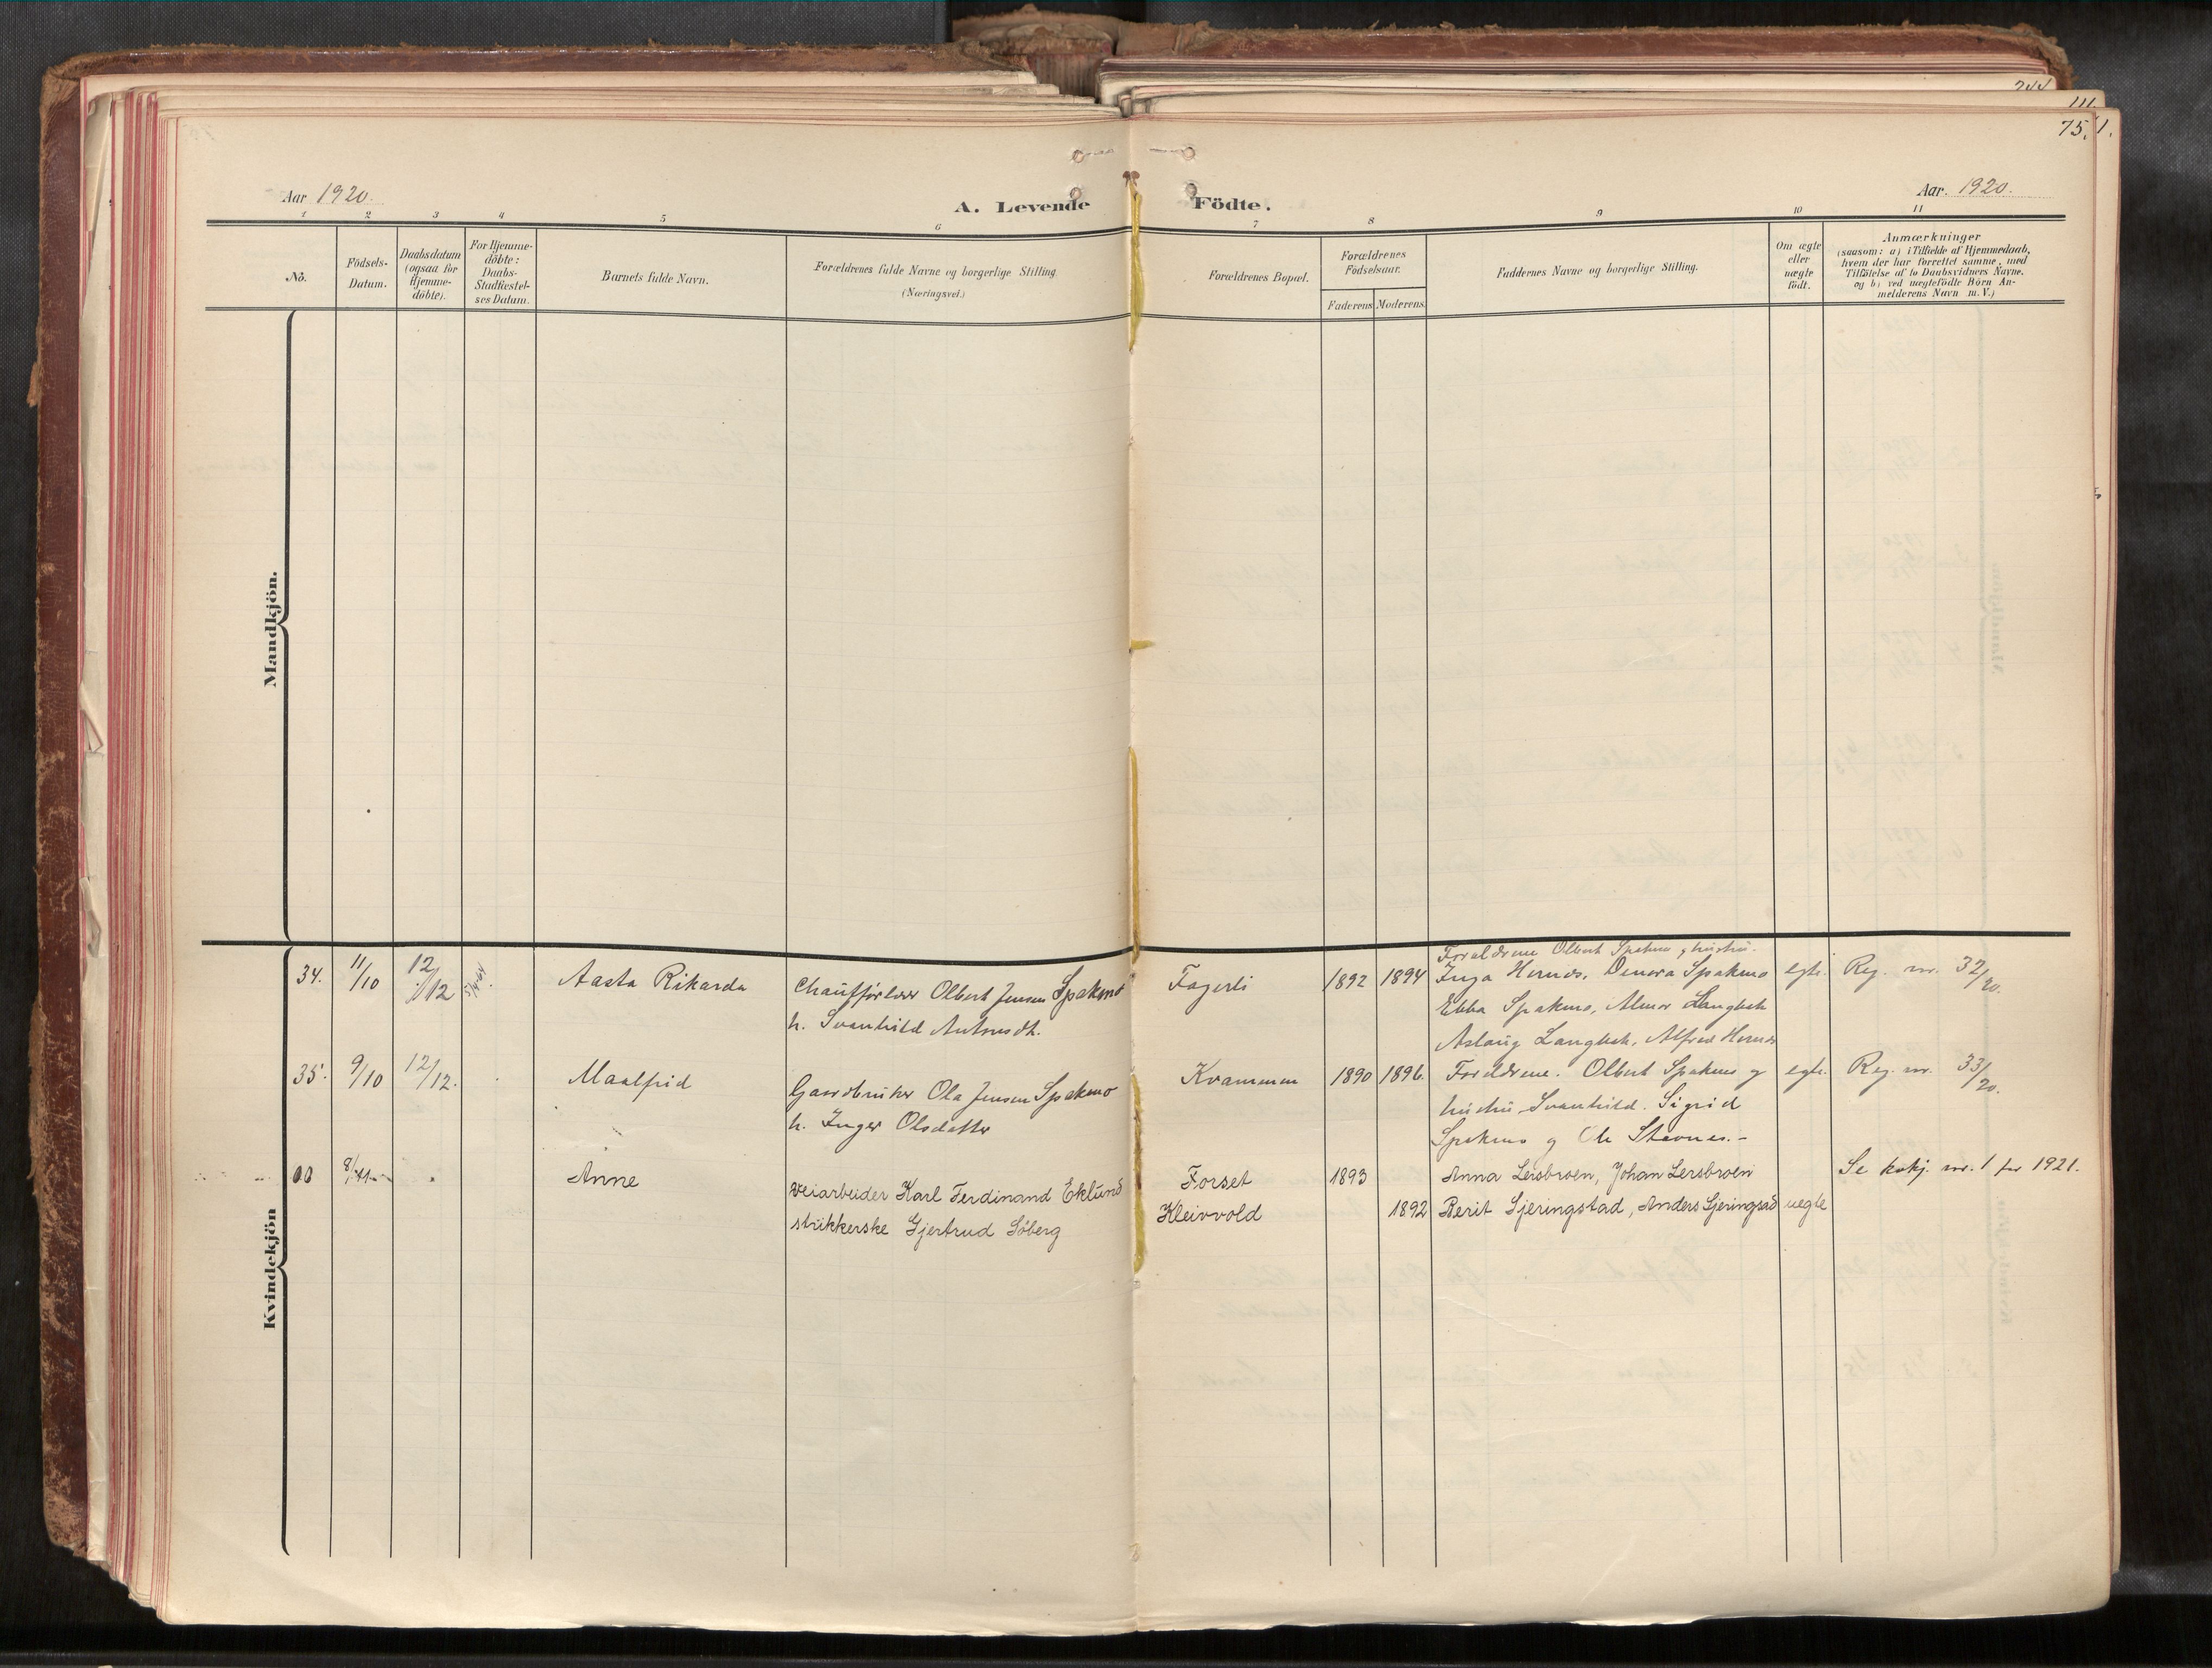 244
111.
75. 1.
Aar 1920.
A. Levende Födte.
Aar. 1920.
1 2 3 4 5 6 7 8 9 10 11
No.
Födsels-
Datum.
Daabsdatum
(ogsaa for
Hjemme-
döbte).
For Hjemme-
döbte:
Daabs-
Stadfæstel-
ses Datum.
Barnets fulde Navn.
Forældrenes fulde Navne og borgerlige Stilling.
(Næringsvei.)
Forældrenes Bopæl.
Forældrenes
Födselsaar.
Faderens Moderens
Faddernes Navne og borgerlige Stilling.
Om ægte
eller
uægte
födt.
Anmærkninger
(saasom: a) i Tilfælde af Hjemmedaab,
hvem der har forrettet samme, med
Tilföielse af to Daabsvidners Navne,
og b) ved uægtefödte Börn An-
melderens Navn m. V.)
Mandkjön.
Kvindekjön
34. 11/10 12/12 Aasta Rikarda
Chaufförlærer Olbert Jensen Spakmo
h. Svanhild
Fagerli 1892 1894
Foreldrene Olbert Spakmo og hustru.
Inga Hernes, Denora Spakmo
Ebba Spakmo, Almar Langbek
Aslaug Langbek, Alfred Hernes
egte. Reg. nr. 32/20.
35. 9/10 12/12. Maalfrid
Gaardbruker Ola Jensen Spakmo
h. Inger Olsdatter
Kvammen 1890 1896.
Foreldrene. Olbert Spakmo og
hustru Svanhild. Sigrid
Spakmo og Ole Stavnes.-
egte. Reg. nr. 33/20.
00 Anne
Veiarbeider Karl Ferdinand Eklund
strikkerske Gjertrud Söberg
Forset 1893
Kleivvold 1892
Anna Leisbroen, Johan Leisbroen
Berit Gjeringstad, Anders Gjeringsad
uegte
Se kskj. nr. 1 for 1921.